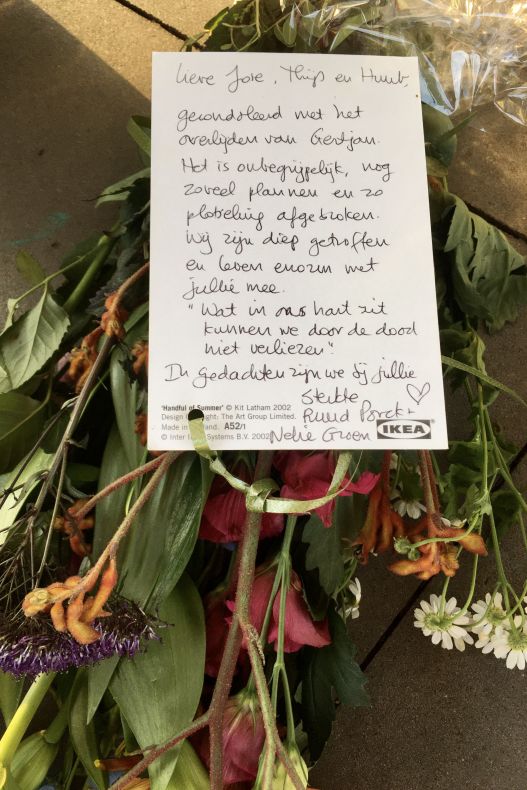 Lieve Jore, Thijs en Huub,
gecondoleerd met het
overlijden van Gertjan.
Het is onbegrijpelijk, nog
zoveel plannen en zo
plotseling afgebroken.
Wij zijn diep getroffen
en leven enorm met
jullie mee.
"Wat in ons hart zit
kunnen we door de dood
niet verliezen".
In gedachten zijn we bij jullie
Sterkte
Ruud Porck +
Nelie Groen
'Handful of Summer' © Kit Latham 2002
Design Copyright: The Art Group Limited.
Made in England. A52/1
© Inter IKEA Systems B.V. 2002
IKEA